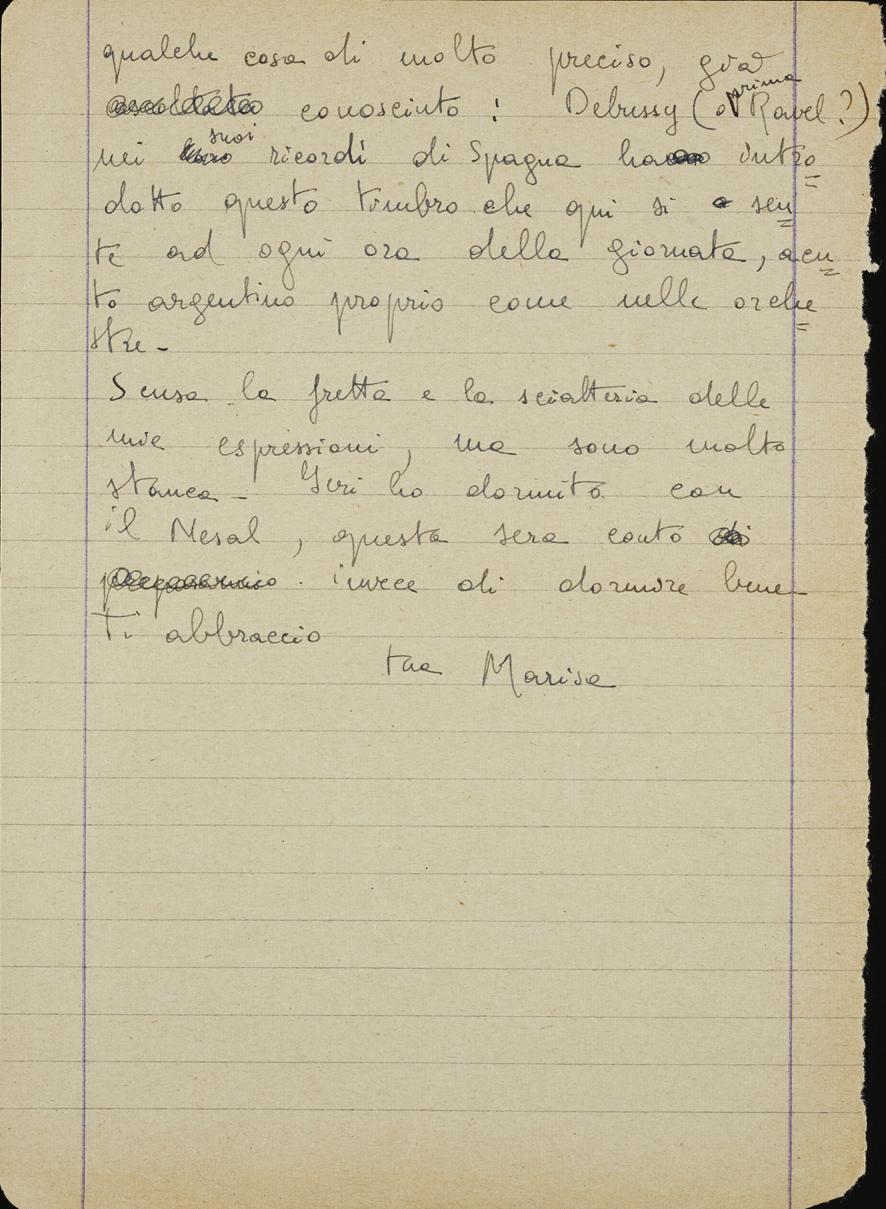 qualche cosa di molto preciso, già
ascoltato conosciuto! Debussy (o prima Ravel?)
nei loro suoi ricordi di Spagna ha intro
dotto questo timbro che qui si sen
te ad ogni ora della giornata, acu
to argentino proprio come nelle orche
stre -
Scusa la fretta e la sciatteria delle
mie espressioni, ma sono molto
stanca - Ieri ho dormito con
il Nesal, questa sera conto di
invece di dormire bene -
Ti abbraccio
tua Marisa